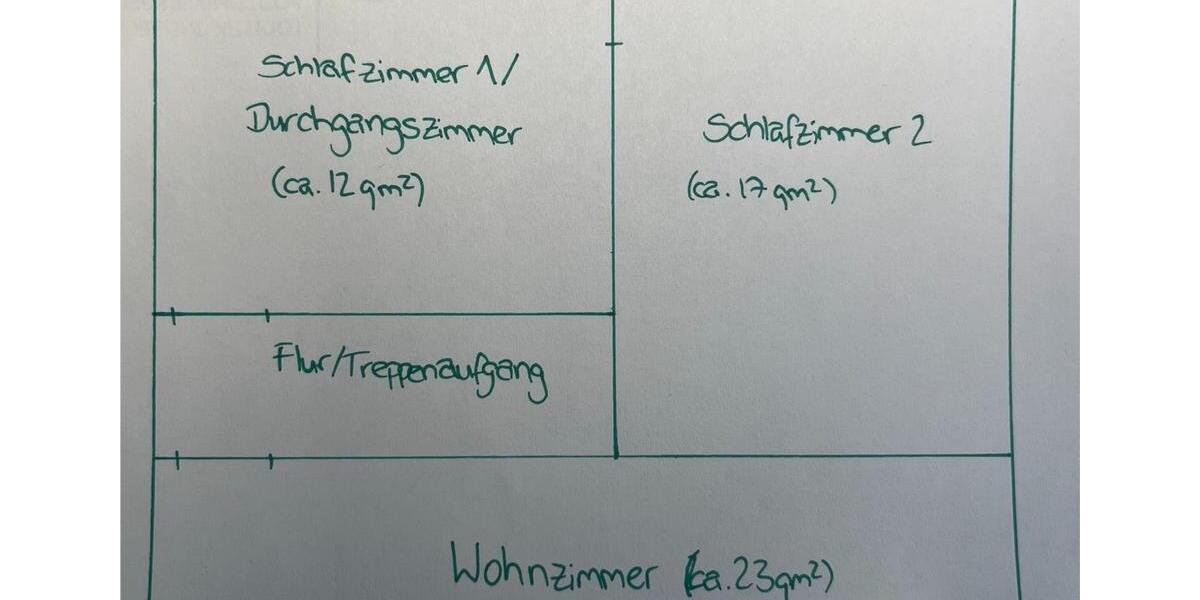 Schlafzimmer 1/
Durchgangszimmer
(ca. 12 qm²)
Schlafzimmer 2
(ca. 17 qm²)
Flur/Treppenaufgang
Wohnzimmer (ca. 23 qm²)